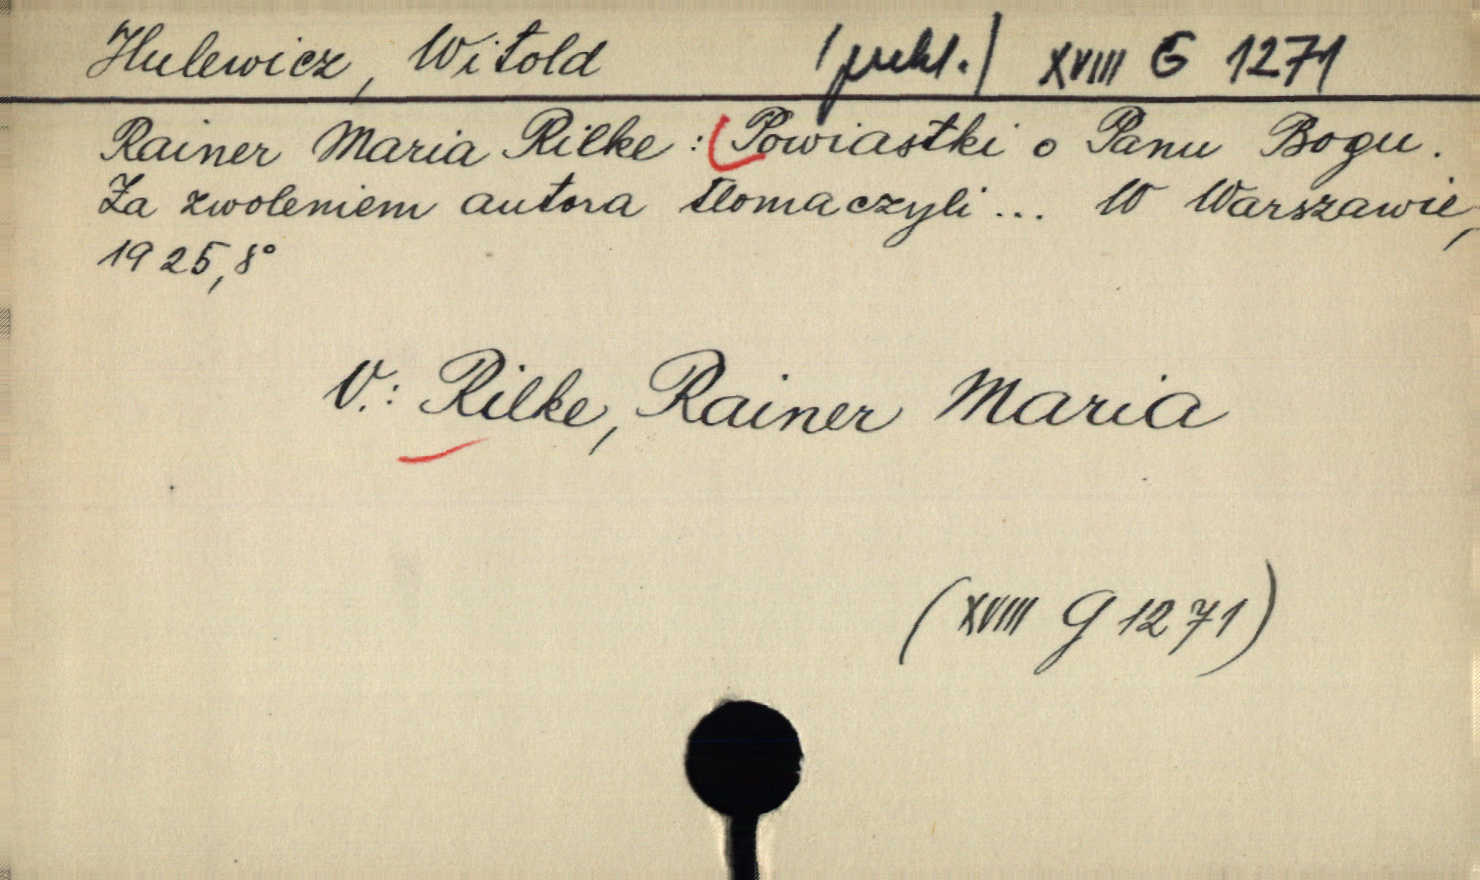 Hulewicz, Witold /překl./ XVIII G 1271
Rainer Maria Rilke: Powiastki o Panu Bogu.
Za zwoleniem autora tłomaczyli... W Warszawie,
1925, 8°
V.: Rilke, Rainer Maria
(XVIII G 1271)